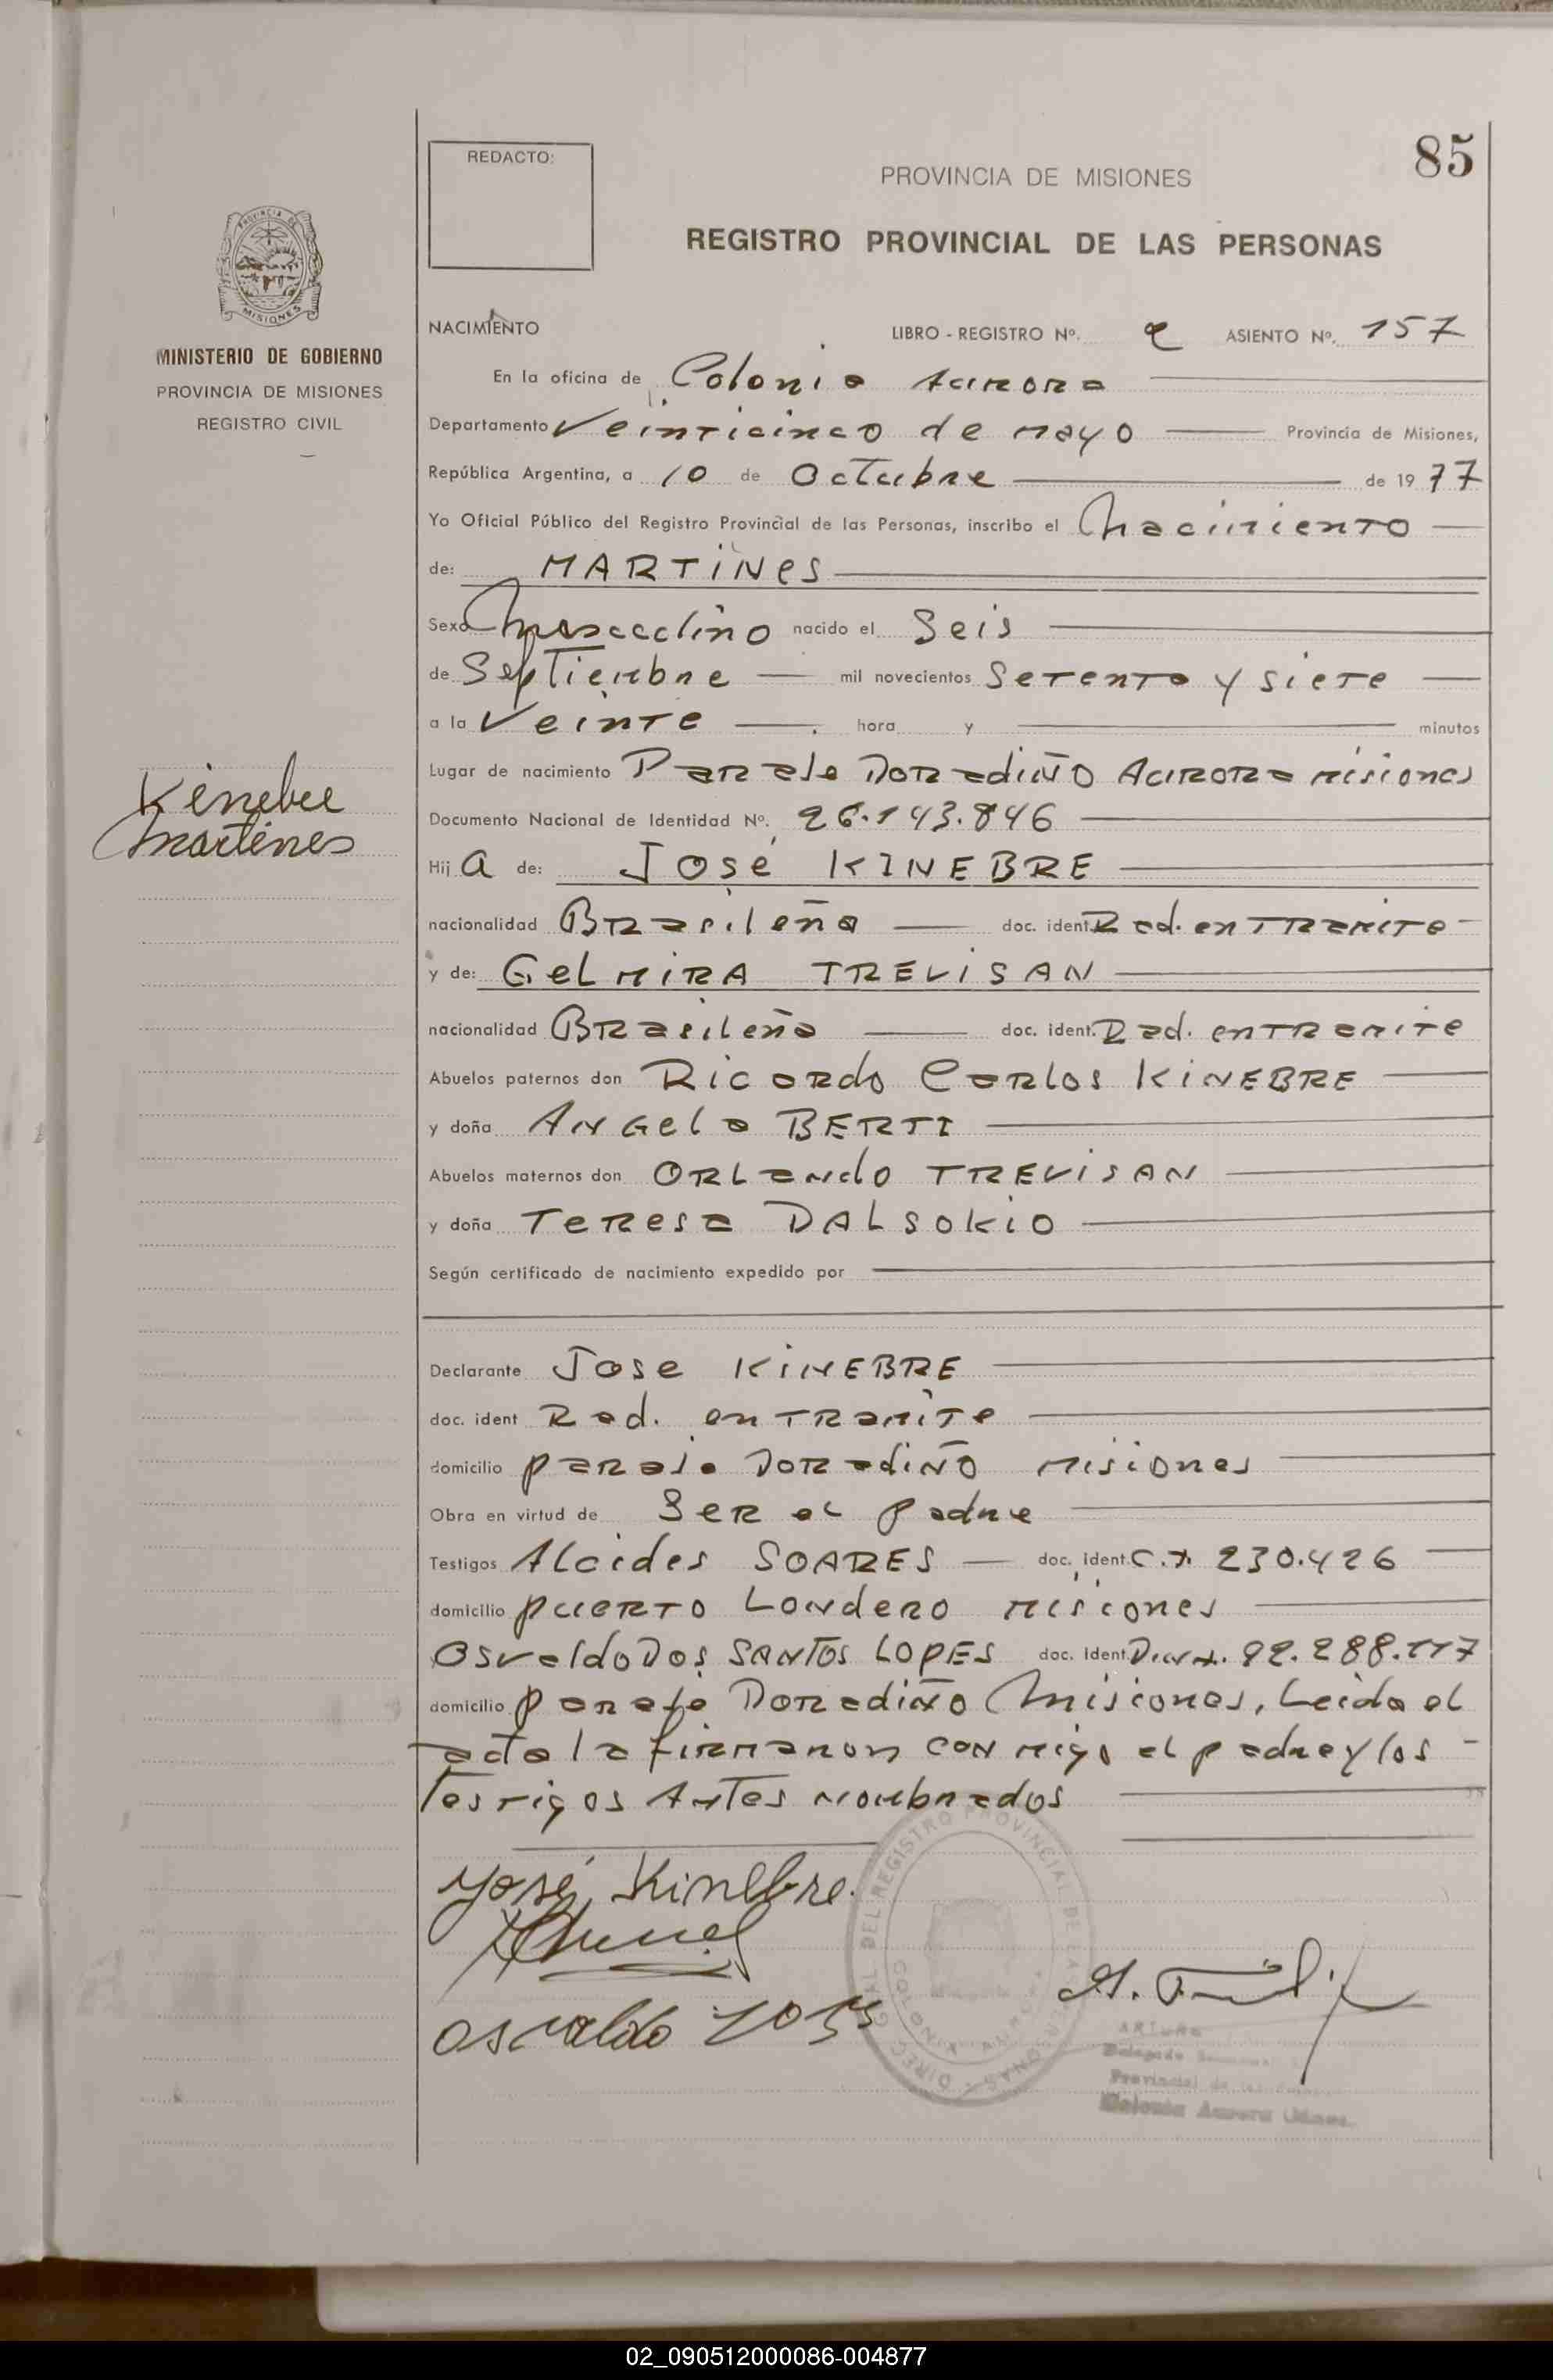 85
REDACTO:
PROVINCIA DE MISIONES
REGISTRO PROVINCIAL DE LAS PERSONAS
MISIONES
MINISTERIO DE GOBIERNO
PROVINCIA DE MISIONES
REGISTRO CIVIL
NACIMIENTO LIBRO - REGISTRO Nº. 2 ASIENTO Nº. 157
En la oficina de Colonia Aurora
Departamento Veinticinco de mayo Provincia de Misiones,
República Argentina, a 10 de Octubre de 1977
Yo Oficial Público del Registro Provincial de las Personas, inscribo el Nacimiento
de: MARTiNes
Sexo Masculino nacido el Seis
de Septiembre mil novecientos Setenta y siete
a la Veinte hora y minutos
Lugar de nacimiento Paraje DoradiÑo Aurora misiones
Kinebre
Martines
Documento Nacional de Identidad Nº. 26.143.846
Hij a de: José KINEBRE
nacionalidad Brasileña doc. ident. Rad. en Tramite
y de: GelmiRA TREViSAN
nacionalidad Brasileña doc. ident. Rad. en Tramite
Abuelos paternos don Ricardo Carlos KiNEBRE
y doña ANGela BERTI
Abuelos maternos don ORLando TREViSAN
y doña Teresa DALSOKiO
Según certificado de nacimiento expedido por
Declarante Jose KiNEBRE
doc. ident Rad. en Tramite
domicilio paraje DoradiÑo misiones
Obra en virtud de Ser el padre
Testigos Alcides SOARES doc. ident. C.I. 230.426
domicilio puerto Londero misiones
Osvaldo Dos SANTOS LOPES doc. ident. 92.288.117
domicilio paraje DoradiÑo Misiones, Leida el
acta la firmaron conmigo el padre y los
Testigos Antes nombrados
José Kinebre.
osvaldo
DIREC. GRAL. DEL REGISTRO PROVINCIAL DE LAS PERSONAS
COLONIA AURORA
Colonia Aurora
02_090512000086-004877